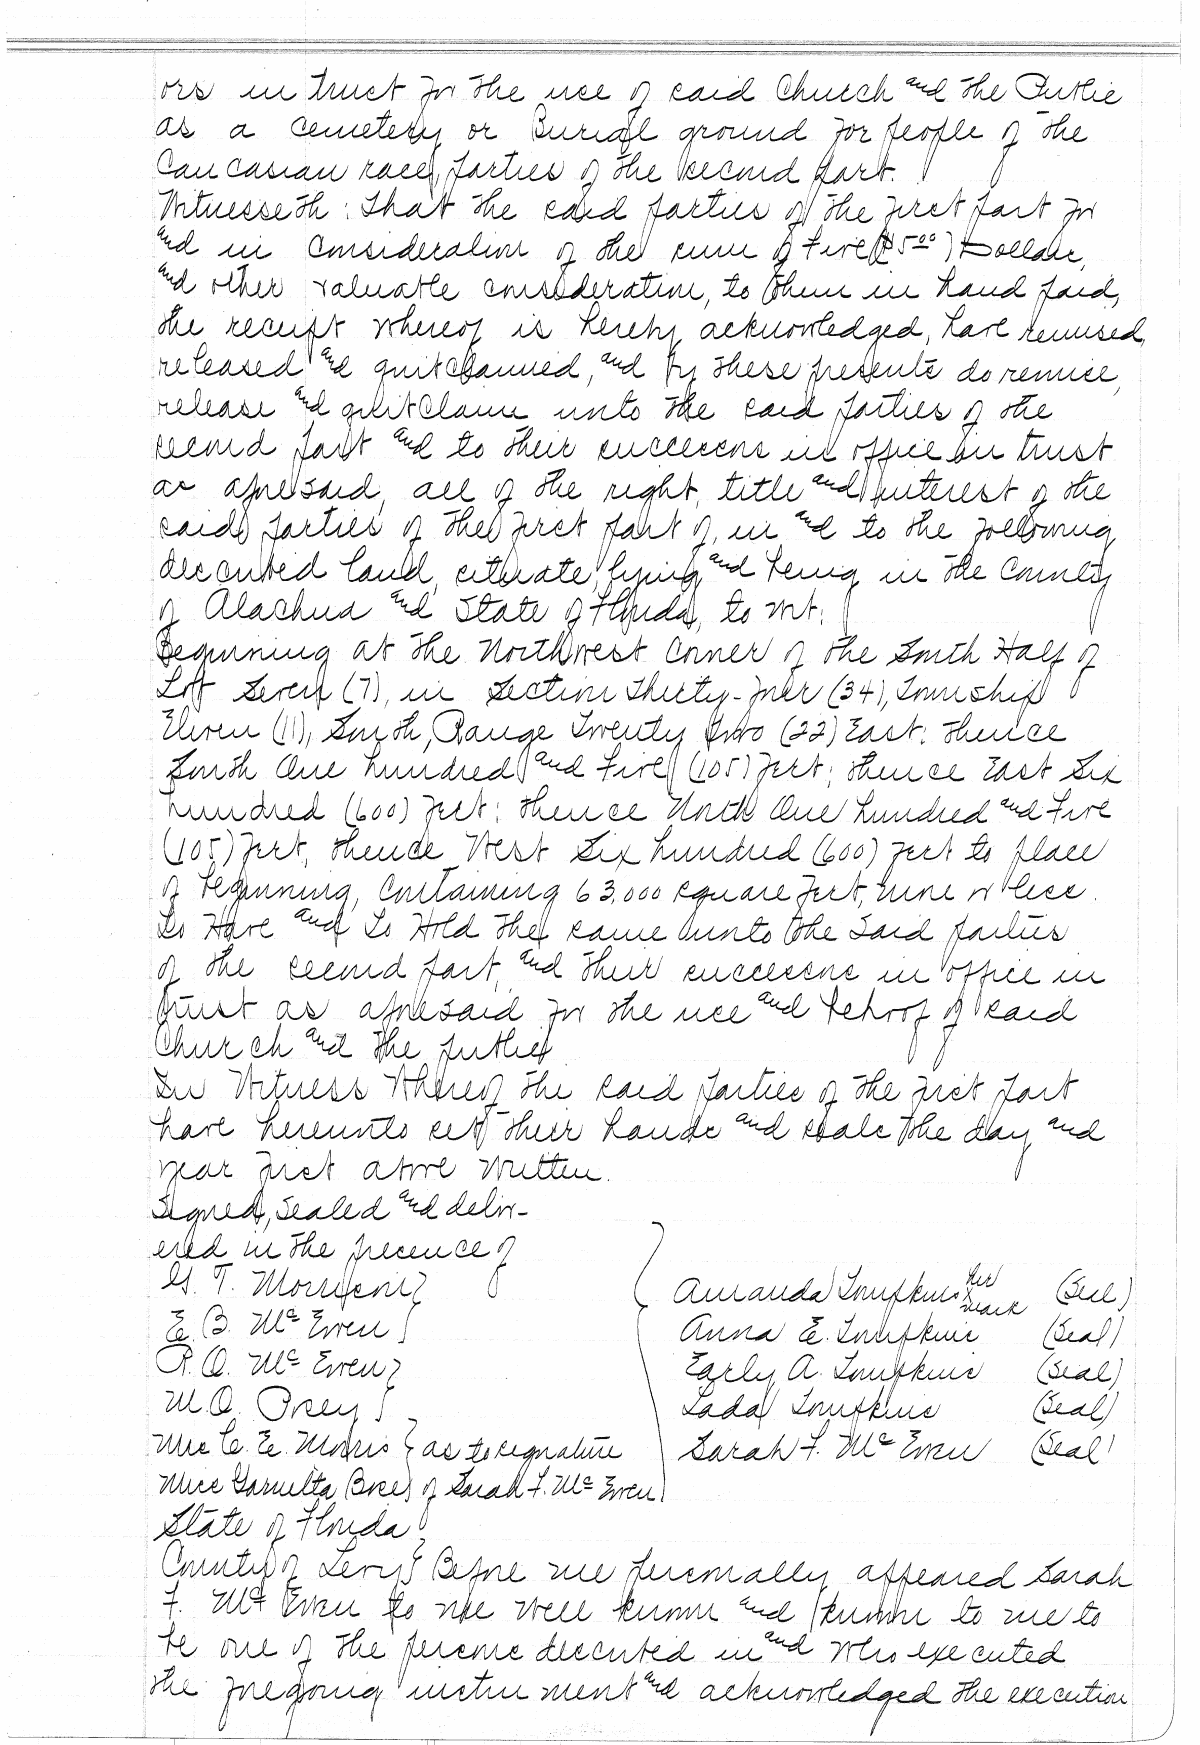 ors in trust for the use of said Church and the Public
as a cemetery or Burial ground for people of the
Caucasian race, parties of the second part.
Witnesseth: That the said parties of the first part for
and in consideration of the sum of Five ($5.00) Dollars,
and other valuable consideration, to them in hand paid,
the receipt whereof is hereby acknowledged, have remised,
released and quitclaimed, and by these presents do remise,
release and quitclaim unto the said parties of the
second part and to their successors in office in trust
as aforesaid, all of the right, title and interest of the
said parties of the first part of, in and to the following
described land, situate, lying and being in the County
of Alachua and State of Florida, to wit:
Beginning at the Northwest Corner of the South Half of
Lot Seven (7), in Section Thirty-four (34), Township
Eleven (11), South, Range Twenty two (22) East: thence
South One hundred and Five (105) feet; thence East Six
hundred (600) feet; thence North One hundred and Five
(105) feet, thence West Six hundred (600) feet to place
of beginning, Containing 63,000 square feet, more or less.
To Have and To Hold the same unto the said parties
of the second part, and their successors in office in
trust as aforesaid for the use and behoof of said
Church and the public
In Witness Whereof the said parties of the first part
have hereunto set their hands and seals the day and
year first above written.
Signed, sealed and deliv-
ered in the presence of
G. T. Morrison
E. B. McEwen
R. O. McEwen
M. O. Posey
Mrs C. E. Morris } as to signature
Miss of Sarah F. McEwen
Amanda Tompkins her x mark (Seal)
Anna E. Tompkins (Seal)
Early A. Tompkins (Seal)
Lada Tompkins (Seal)
Sarah F. McEwen (Seal)
State of Florida
County of Levy } Before me personally appeared Sarah
F. McEwen to me well known and known to me to
be one of the persons described in and who executed
the foregoing instrument and acknowledged the execution